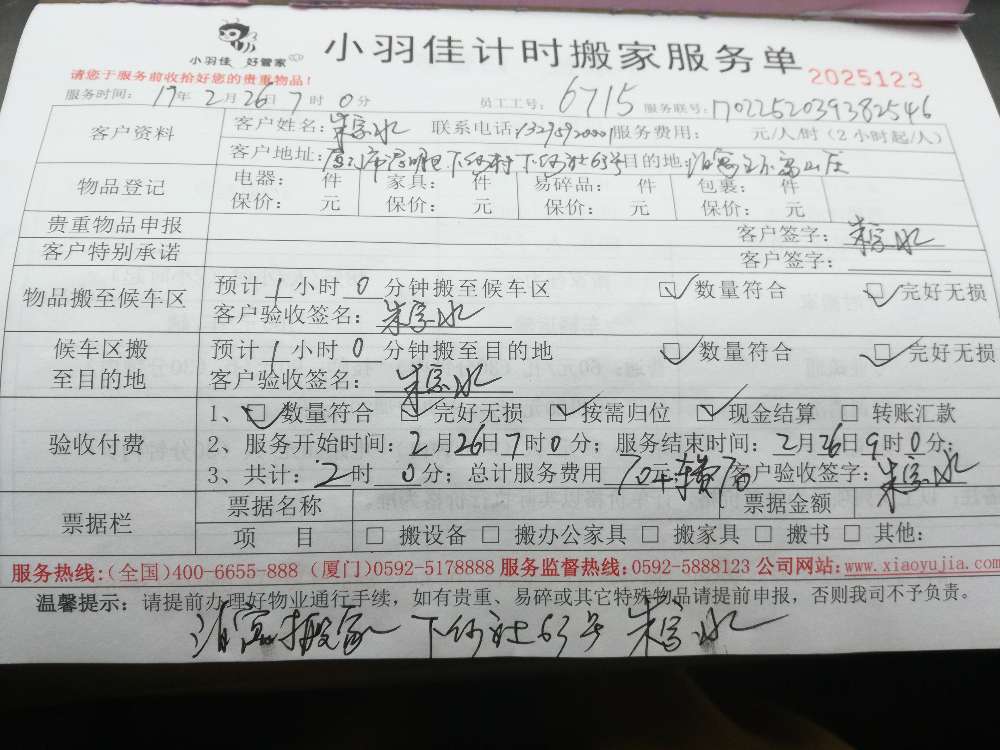 小羽佳 好管家
小羽佳计时搬家服务单
请您于服务前收拾好您的贵重物品！
2025123
服务时间：17年2月26日7时0分 员工工号：6715 服务联号：170225203938２546
客户资料 客户姓名： 联系电话： 服务费用： 元/人/时（2小时起/人）
客户地址： 下忻社63号 目的地：
物品登记 电器： 件 家具： 件 易碎品： 件 包裹： 件
保价： 元 保价： 元 保价： 元 保价： 元
贵重物品申报 客户签字：
客户特别承诺 客户签字：
物品搬至候车区 预计1小时0分钟搬至候车区 数量符合 完好无损
客户验收签名：
候车区搬至目的地 预计1小时0分钟搬至目的地 数量符合 完好无损
客户验收签名：
验收付费 1、数量符合 完好无损 按需归位 现金结算 转账汇款
2、服务开始时间：2月26日7时0分；服务结束时间：2月26日9时0分；
3、共计：2时0分；总计服务费用 70元 客户验收签字：
票据栏 票据名称 票据金额
项 目 搬设备 搬办公家具 搬家具 搬书 其他：
服务热线：（全国）400-6655-888（厦门）0592-5178888 服务监督热线：0592-5888123 公司网站：www.xiaoyujia.com
温馨提示：请提前办理好物业通行手续，如有贵重、易碎或其它特殊物品请提前申报，否则我司不予负责。
搬家 63号